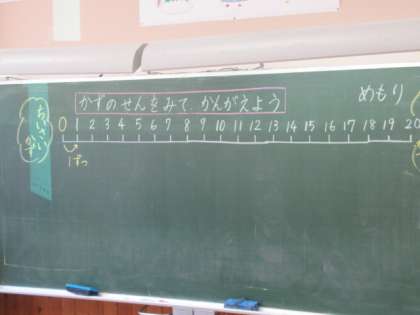 かずのせんをみて かんがえよう
めもり
ちいさい
かず
0 1 2 3 4 5 6 7 8 9 10 11 12 13 14 15 16 17 18 19 20
1ずつ